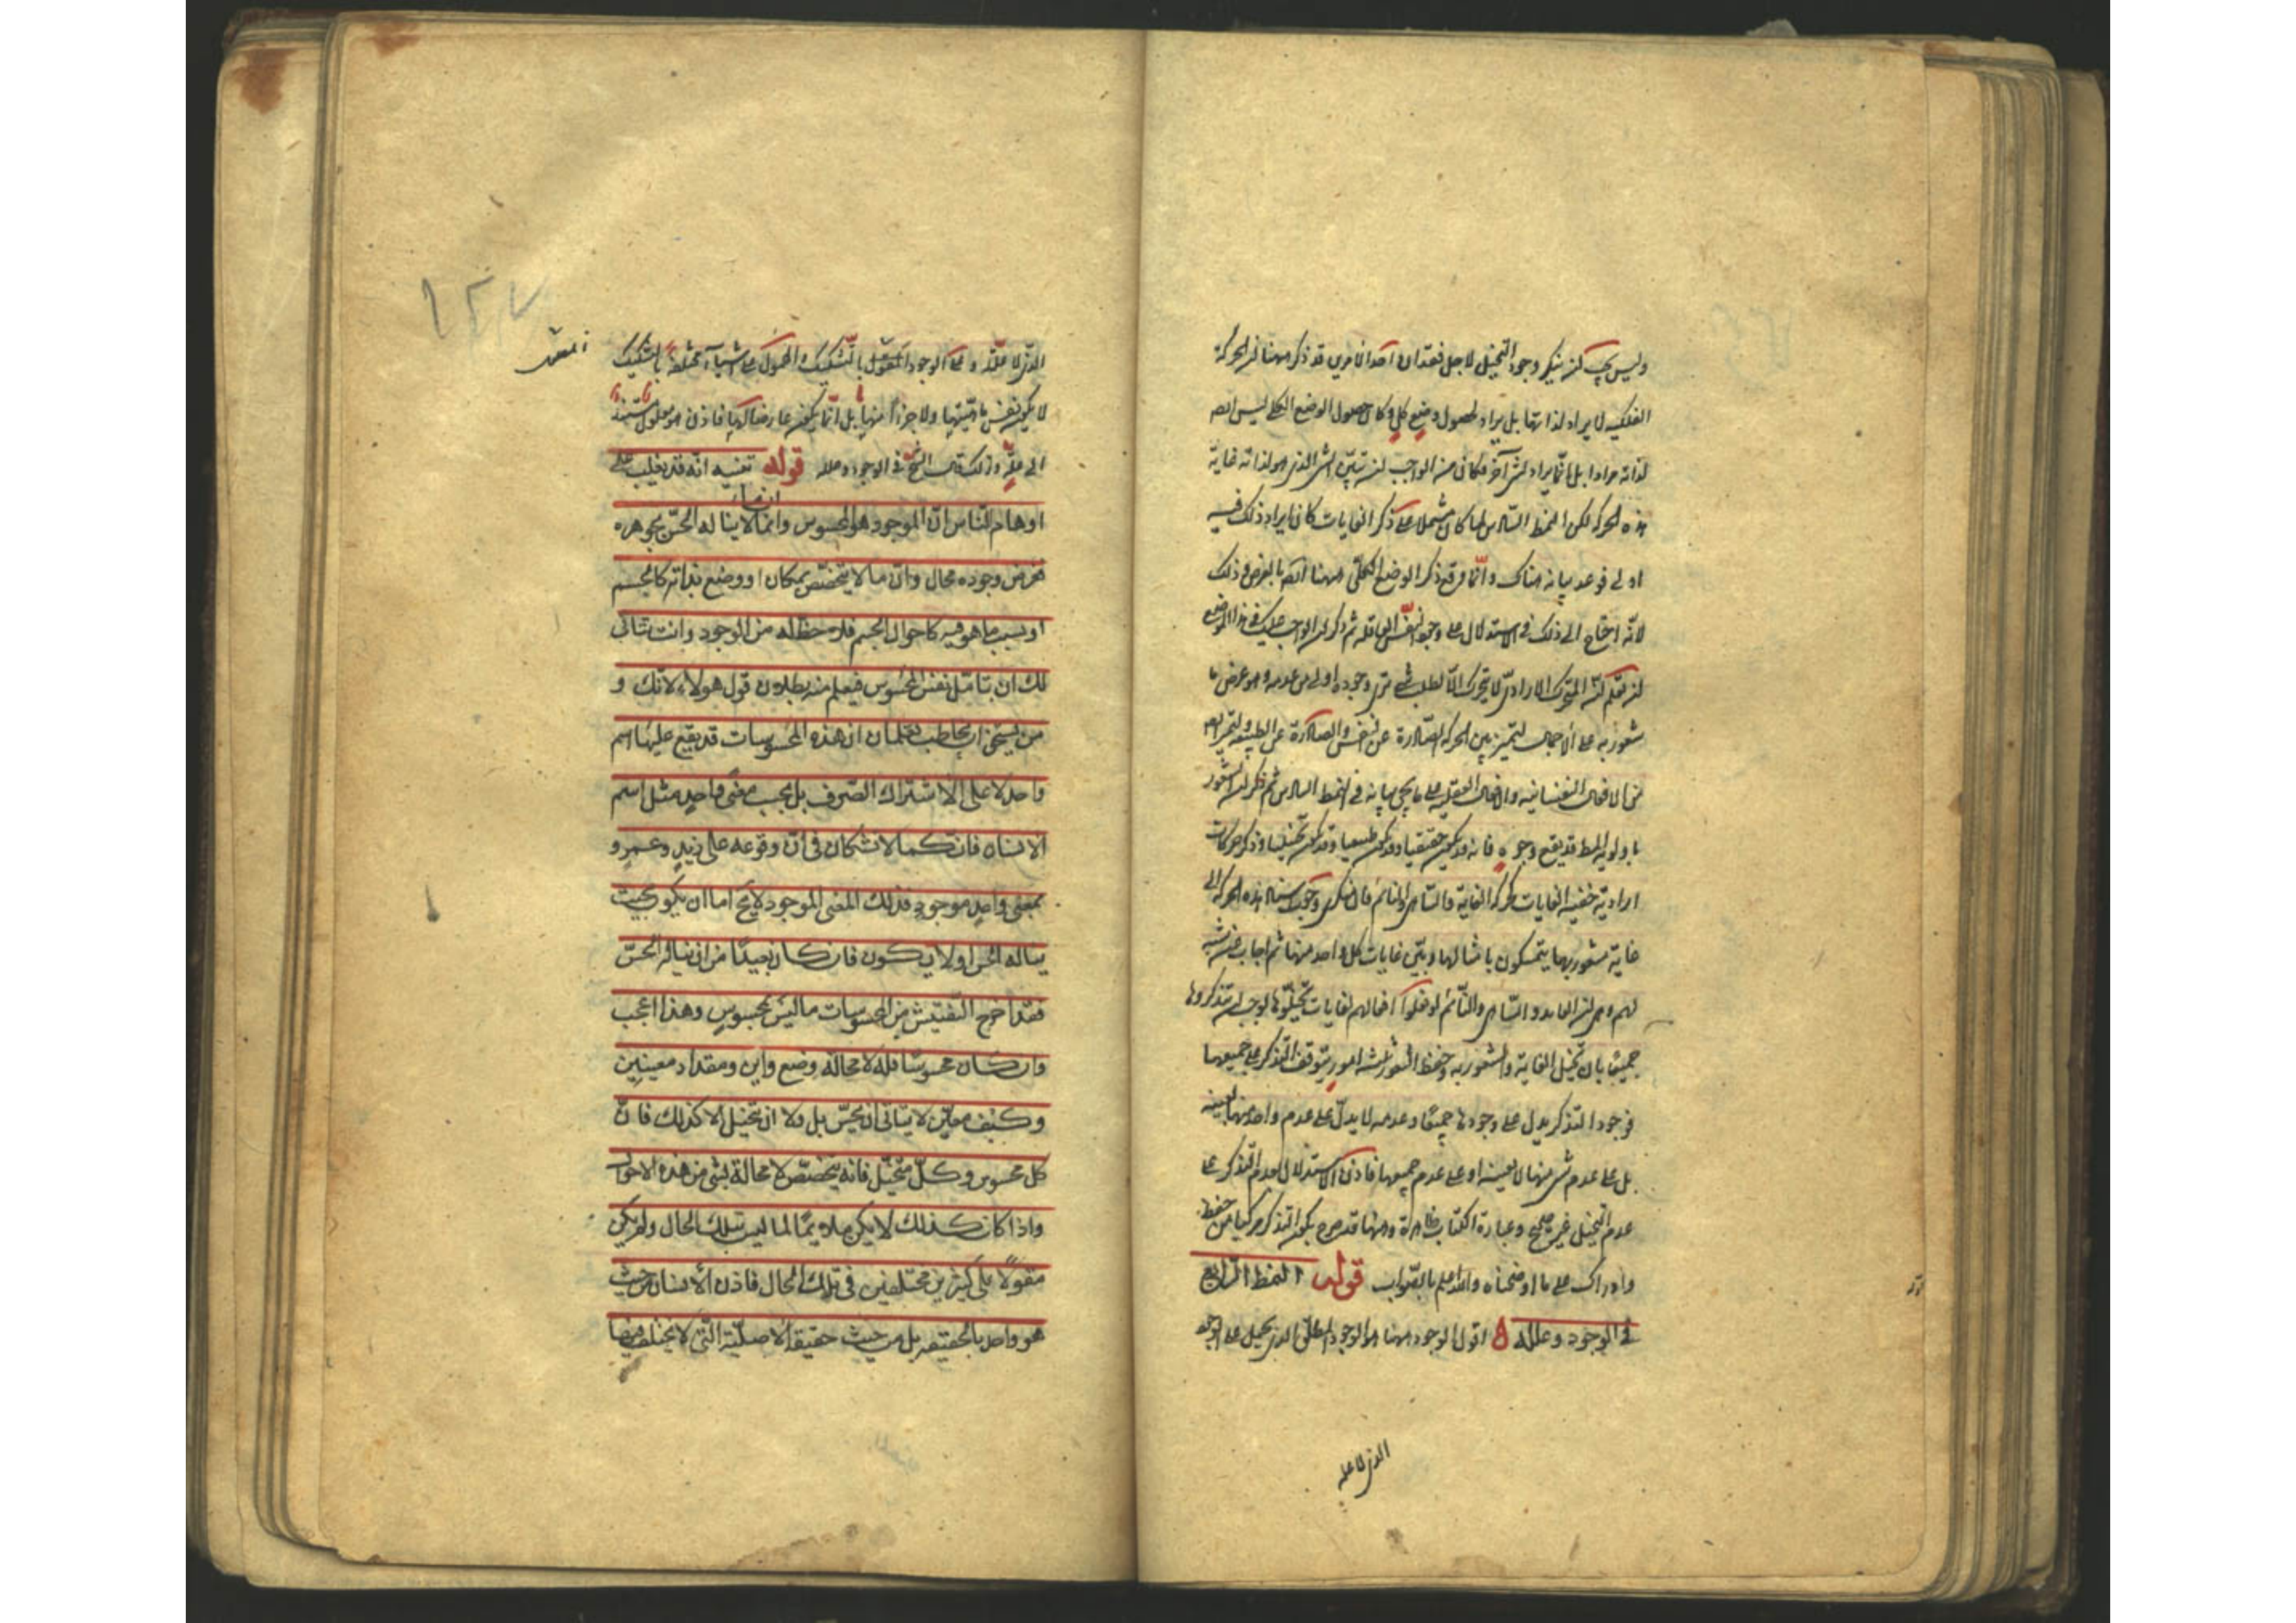 وليس يجب لن ينكر وجود التخيل لاجل فقدان احد الامرين قد ذكر ههنا لن الحركة
الفلكية لا يراد لذاتها بل يراد لحصول وضع كلي وكان حصول الوضع الكلي ليس ايضا
لذاته مرادا بل انما يراد لشئ آخر فكان من الواجب لن يتبين الشئ الذي هو لذاته غاية
هذه الحركة لكن النمط السادس لما كان مشتملا على ذكر الغايات كان ايراد ذلك فيه
اولى فوعد بيانه هناك وانما وقع ذكر الوضع الكلي ههنا ايضا بالعرض وذلك
لانه احتاج الى ذلك في الاستدلال على وجود النفس العاقلة ثم ذكر لن الواجب عليك في هذا الموضع
لن تعلم لن المتحرك الارادي لا يتحرك الا لطلب شئ وجوده اولى من عدمه وهو عرض ما
شعور به على الاجمال ليتميز بين الحركة الصادرة عن النفس والصادرة عن الطبيعة وليتميز ايضا
من الافعال النفسانية والافعال العقلية على ما يجئ بيانه في النمط السادس ثم ذكر لن الشعور
باولوية المط قد يقع وجوه فانه قد يكون حقيقيا وقد يكون ظنيا وقد يكون تخيليا وذكر حركات
ارادية خفية الغايات كحركة العابث والساهي والنائم فان منكري وجوب استناد هذه الحركة الى
غاية مشعور بها يتمسكون بامثالها وبين غايات كل واحد منها ثم اجاب عن شبه
لهم وهي لن العابث والساهي والنائم لو فعلوا افعالهم لغايات تخيلوها لوجب لن يتذكروها
جميعا بان تخيل الغاية والشعور به وحفظ الشعور ثلثة امور يتوقف التذكر على جميعها
فوجود التذكر يدل على وجودها جميعا وعدمه لا يدل على عدم واحد منها بعينه
بل على عدم شئ منها لا بعينه او على عدم جميعها فاذن الاستدلال لعدم التذكر على
عدم التخيل غير صحيح وعبارة الكتاب ظاهرة وههنا قد صرح بكون التذكر مركبا من حفظ
وادراك على ما اوضحناه والله اعلم بالصواب قوله النمط الرابع
في الوجود وعلله اقول الوجود ههنا هو الوجود المطلق الذي يحمل على الوجود
الذي لا علة
١٢٧
الذي لا علة له و على الوجود المعلول بالتشكيك والمحمول على اشياء مختلفة بالتشكيك
لا يكون نفس ماهيتها ولا جزءا منها بل انما يكون عارضا لها فاذن هو معلول مستند
الى علة ولذلك قال الشيخ في الوجود وعلله قوله تنبيه انه قد يغلب على
اوهام الناس ان الموجود هو المحسوس وان ما لا يناله الحس بجوهره
ففرض وجوده محال وان ما لا يتخصص بمكان او وضع بذاته كالجسم
او بسبب ما هو فيه كاحوال الجسم فلا حظ له من الوجود وانت يتاتى
لك ان تتامل نفس المحسوس فيعلم منه بطلان قول هولاء لانك و
من يستحق ان يخاطب تعلمان ان هذه المحسوسات قد يقع عليها اسم
واحد لا على الاشتراك الصرف بل بحسب معنى واحد مثل اسم
الانسان فانكما لا تشكان في ان وقوعه على زيد وعمرو
بمعنى واحد موجود فذلك المعنى الموجود لا يخ اما ان يكون بحيث
يناله الحس او لا يكون فان كان بعيدا من ان يناله الحس
فقد اخرج التفتيش من المحسوسات ما ليس بمحسوس وهذا اعجب
وان كان محسوسا فله لا محالة وضع واين ومقدار معينين
وكيف معين لا يتاتى ان يحس بل ولا ان يتخيل الا كذلك فان
كل محسوس وكل متخيل فانه يتخصص لا محالة بشئ من هذه الاحوال
واذا كان كذلك لا يكن ملايما لما ليس بتلك الحال ولم يكن
مقولا على كثيرين مختلفين في تلك الحال فاذن الانسان من حيث
هو واحد بالحقيقة بل من حيث حقيقته الاصلية التي لا يختلف فيها